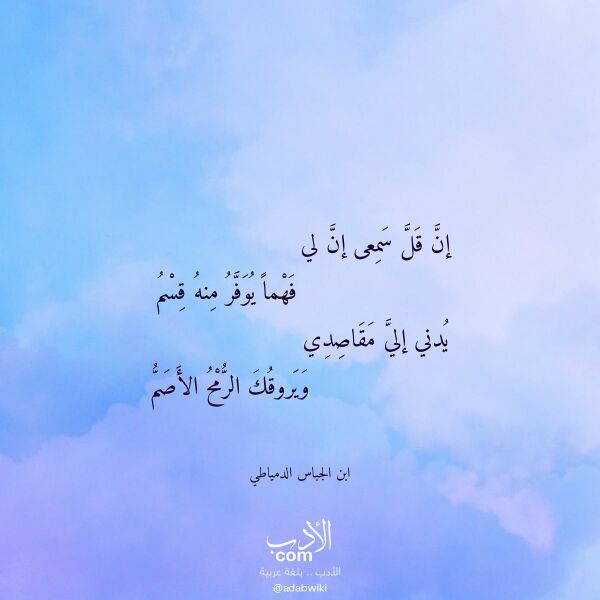 إنَّ قَلَّ سَمِعى إنَّ لي
فَهْماً يُوَفَّرُ مِنهُ قِسْمُ
يُدني إليَّ مَقَاصِدِي
وَيَروقُكَ الرُّمْحُ الأَصَمُّ
ابن الجباس الدمياطي
الأدب
com
الأدب .. بلغة عربية
@adabwiki